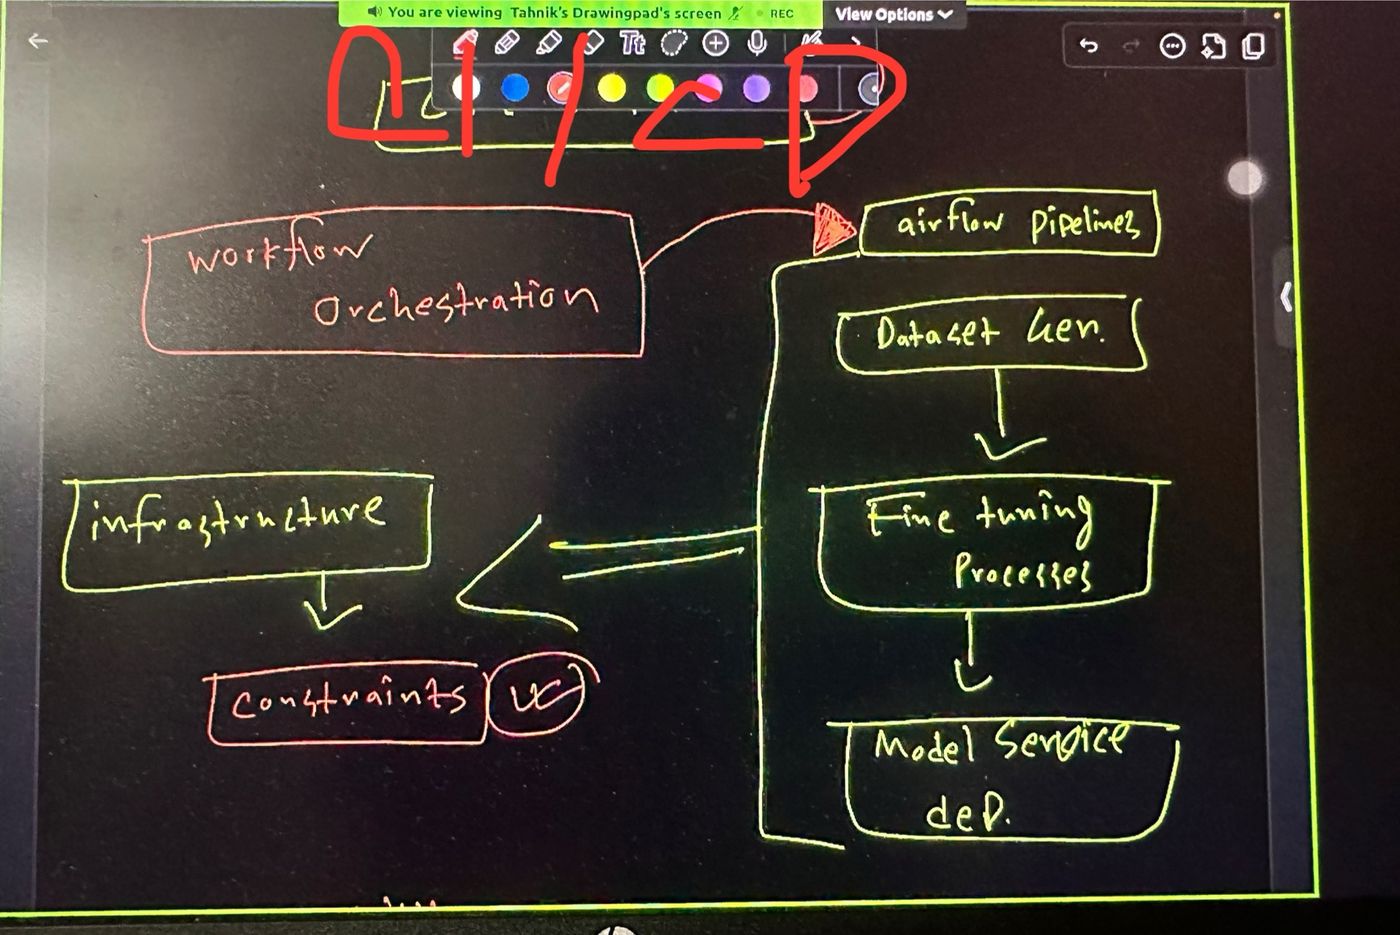 You are viewing Tahnik's Drawingpad's screen
REC
View Options
Tt
workflow
orchestration
airflow pipelines
Dataset Gen.
Fine tuning
Processes
Model Service
dep.
infrastructure
constraints